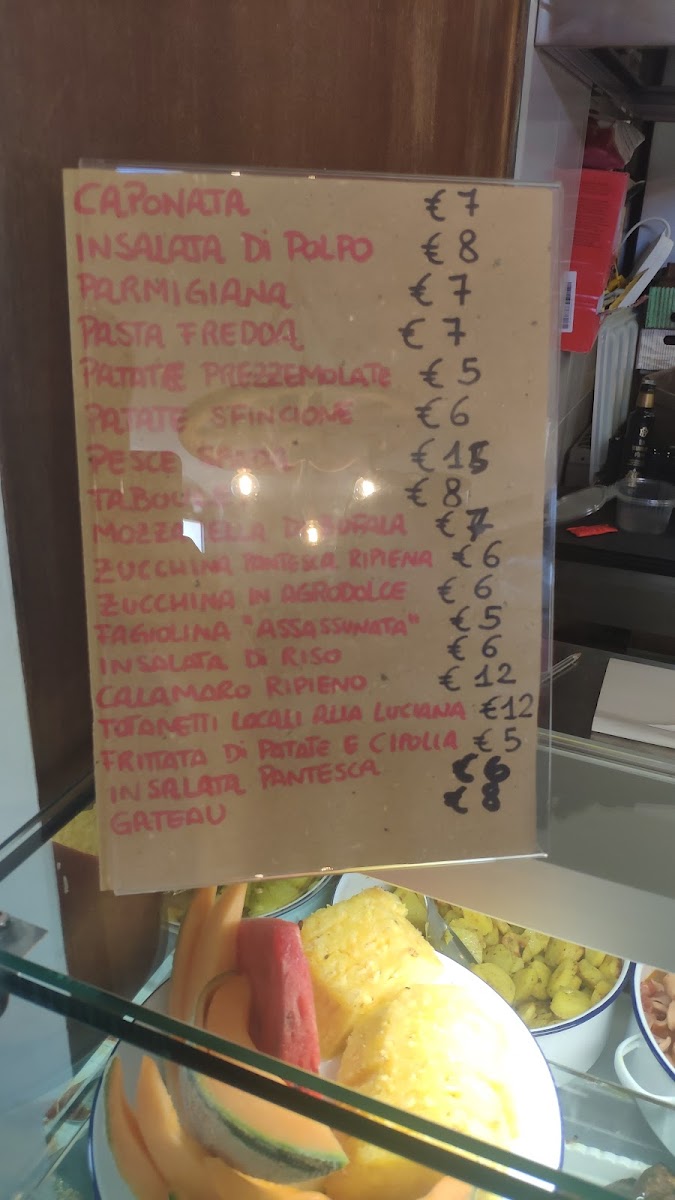 CAPONATA € 7
INSALATA DI POLPO € 8
PARMIGIANA € 7
PASTA FREDDA € 7
PATATE PREZZEMOLATE € 5
PATATE SFINCIONE € 6
PESCE € 15
€ 8
MOZZARELLA DI BUFALA € 7
ZUCCHINA PANTESCA RIPIENA € 6
ZUCCHINA IN AGRODOLCE € 6
FAGIOLINA "ASSASSUNATA" € 5
INSALATA DI RISO € 6
CALAMARO RIPIENO € 12
TOTANETTI LOCALI ALLA LUCIANA €12
FRITTATA DI PATATE E CIPOLLA € 5
INSALATA PANTESCA € 6
GATEAU € 8